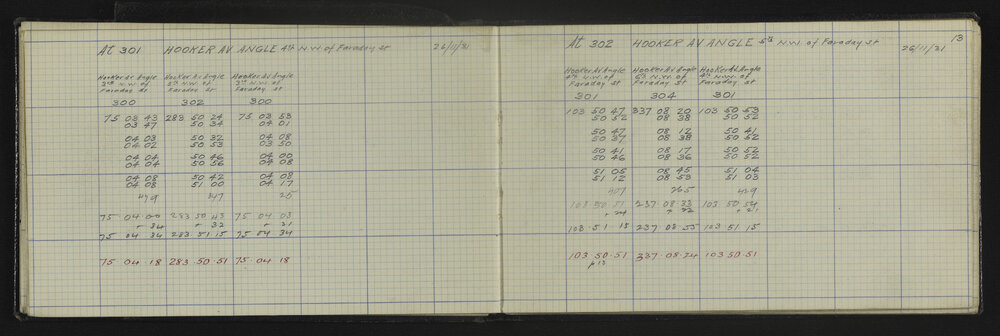 At 301 HOOKER AV ANGLE 4th N.W. of Faraday St 26/11/21
Hooker Av Angle Hooker Av Angle Hooker Av Angle
3rd N.W. of 5th N.W. of 3rd N.W. of
Faraday St Faraday St Faraday St
300 302 300
75 03 43 283 50 24 75 03 53
03 47 50 34 04 01
04 03 50 32 04 08
04 02 50 53 03 50
04 04 50 46 04 00
04 04 50 56 04 08
04 08 50 42 04 08
04 08 51 00 04 17
479 347 25
75 04 00 283 50 43 75 04 03
+ 34 + 32 + 31
75 04 34 283 51 15 75 04 34
75 04 18 283 50 51 75 04 18
13
At 302 HOOKER AV ANGLE 5th N.W. of Faraday St 26/11/21
Hooker Av Angle Hooker Av Angle Hooker Av Angle
4th N.W. of 6th N.W. of 4th N.W. of
Faraday St Faraday St Faraday St
301 304 301
103 50 47 337 08 20 103 50 53
50 52 08 38 50 52
50 47 08 12 50 41
50 37 08 38 50 52
50 41 08 17 50 52
50 46 08 36 50 52
51 05 08 45 51 04
51 12 08 53 51 03
407 265 429
103 50 51 237 08 33 103 50 54
+ 24 + 22 + 21
103 51 15 237 08 55 103 51 15
103 50 51 337 08 24 103 50 51
p 13